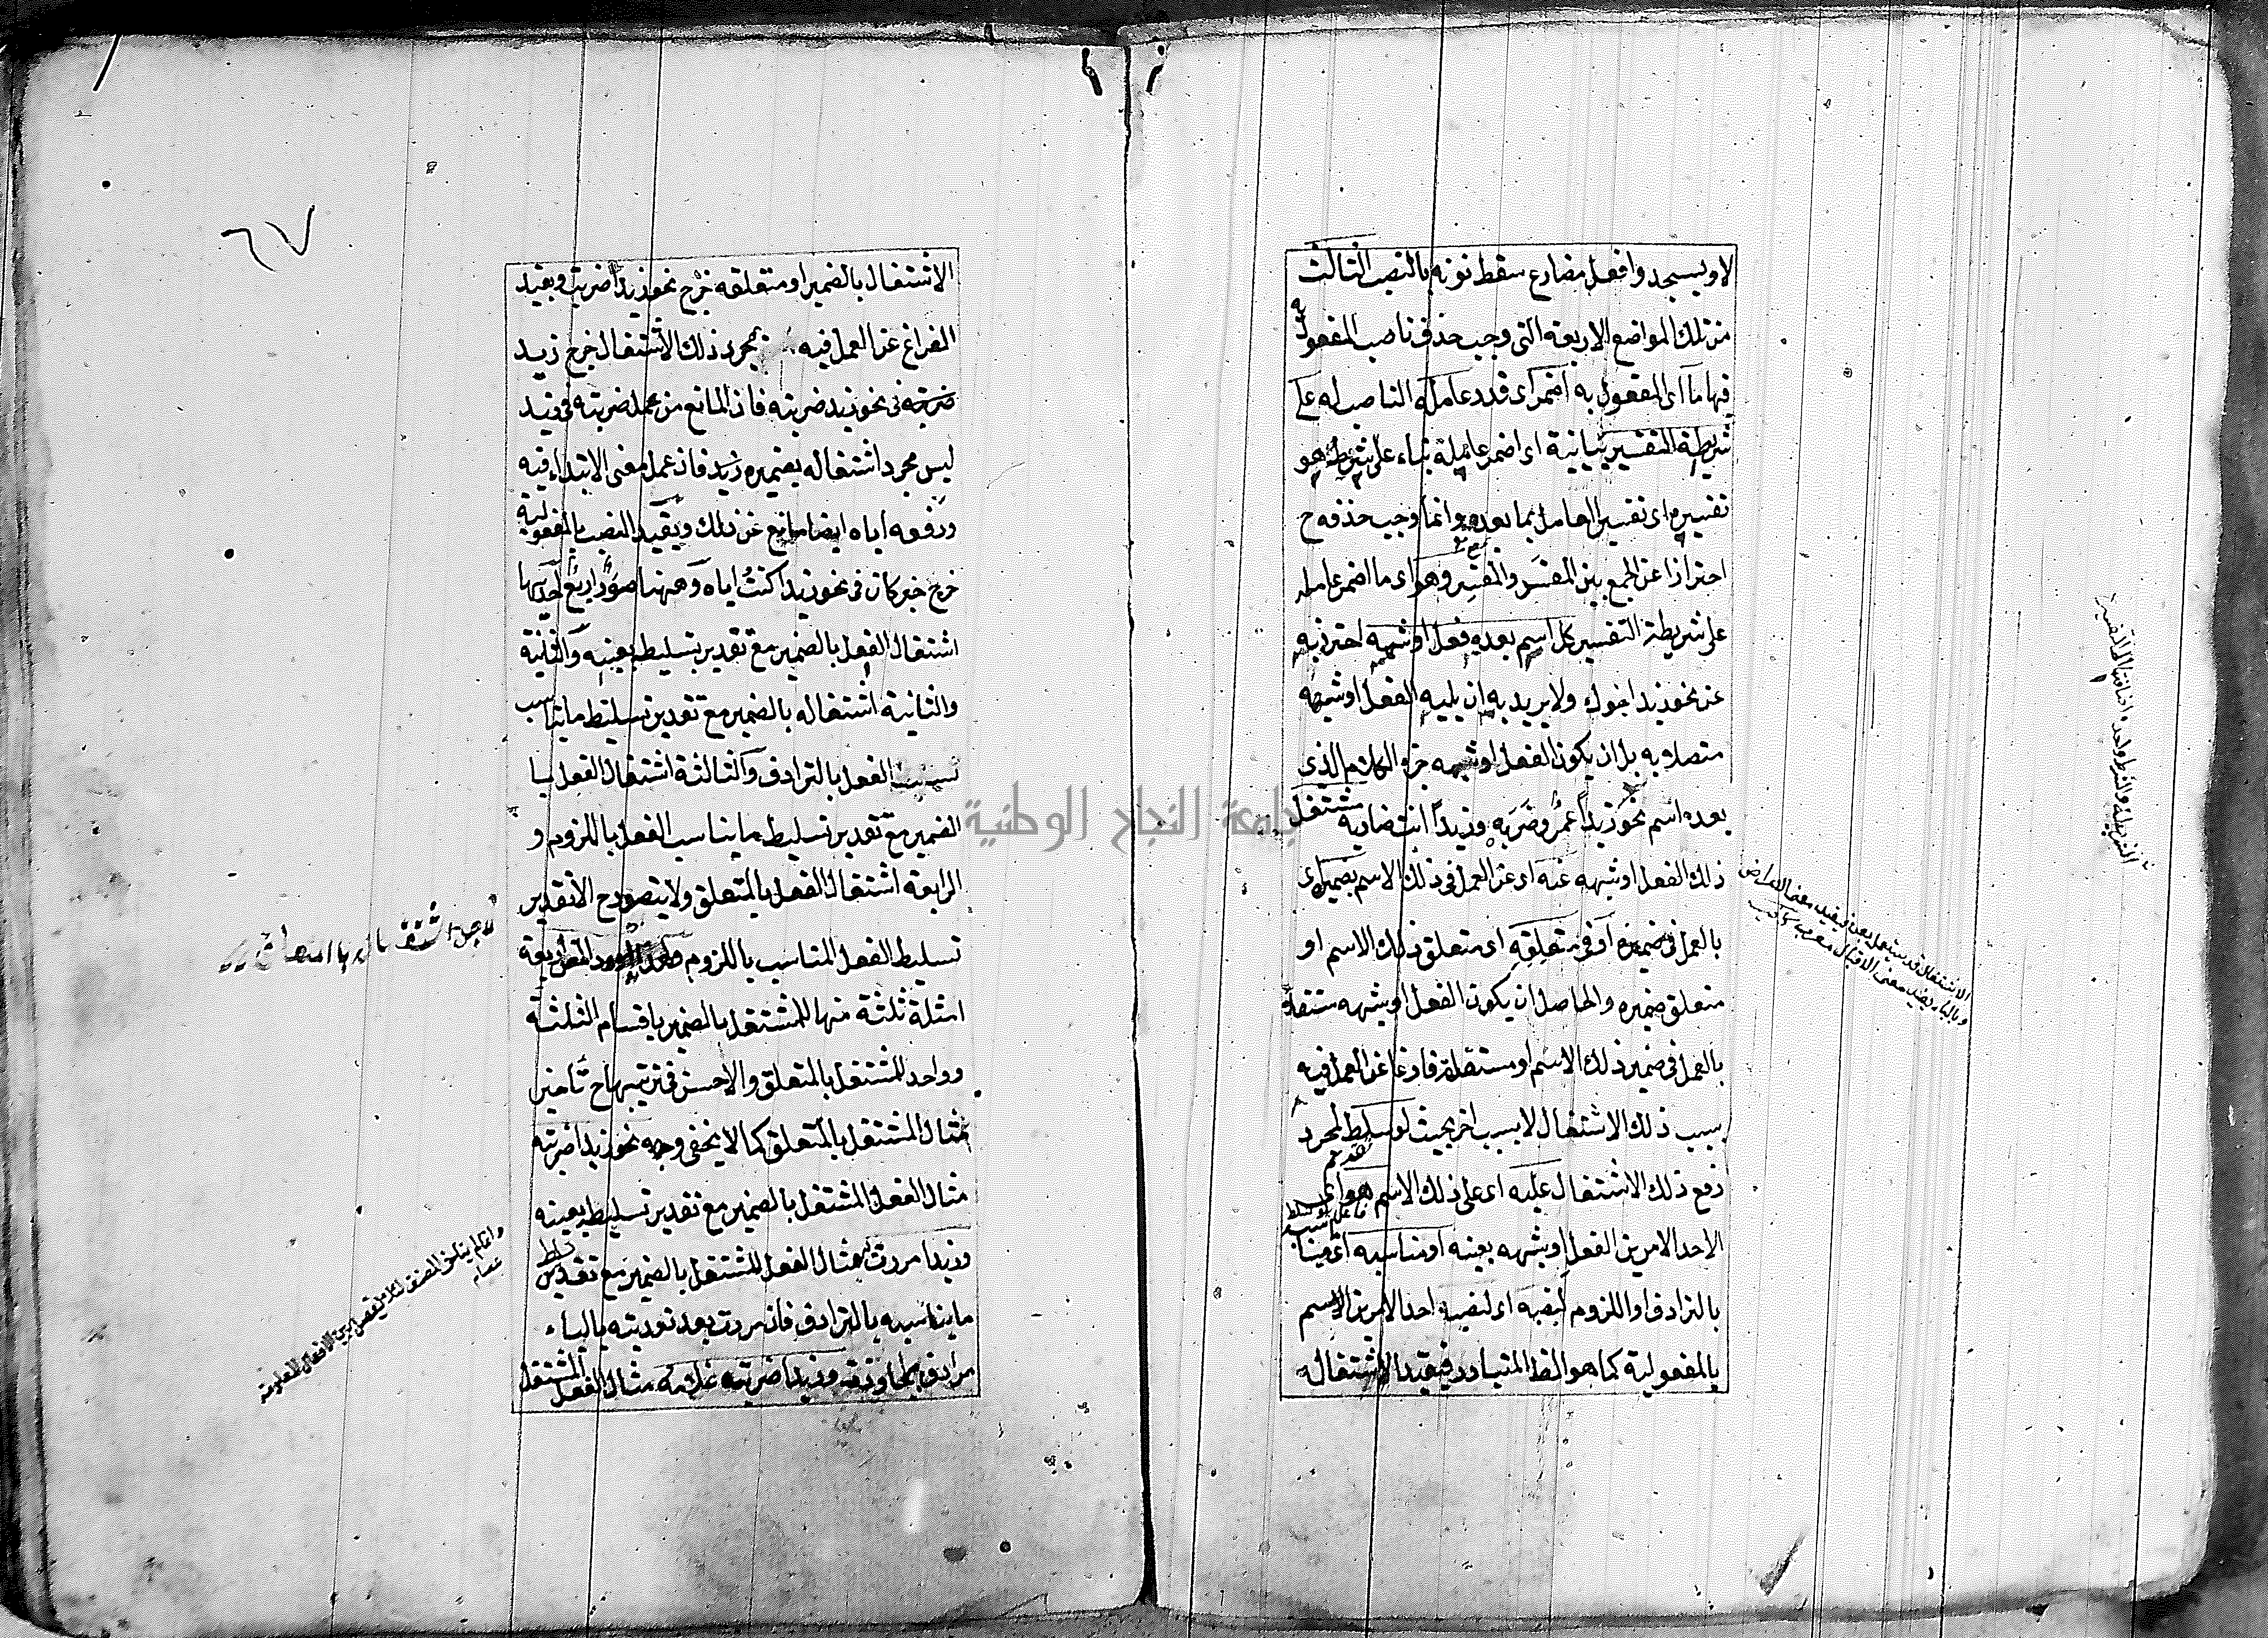 لا ويسجدوا فعل مضارع سقط نونه بالنصب الثالث
من تلك المواضع الاربعة التى وجب حذف ناصب المفعول به
فيها ما اى المفعول به اضمر اى قدر عامله الناصب له على
شريطة التفسير بيانية اى اضمر عامله بناء على شرط هو
تفسيره اى تفسير العامل بما بعده وانما وجب حذفه ح
احترازا عن الجمع بين المفسَر والمفسِر وهو اى ما اضمر عامله
على شريطة التفسير كل اسم بعده فعل او شبهه احترز به
عن نحو زيد اخوك ولا يريد به ان يليه الفعل او شبهه
متصلا به بل ان يكون الفعل او شبهه جزء الكلام الذى
بعده اسم نحو زيدا عمرو ضربه وزيدا انت ضاربه مشتغل
ذلك الفعل او شبهه عنه اى عن العمل فى ذلك الاسم بضميره اى
بالعمل فى ضميره او فى متعلقه اى متعلق ذلك الاسم او
متعلق ضميره والحاصل ان يكون الفعل او شبهه مشتغلا
بالعمل فى ضمير ذلك الاسم او متعلقه فارغا عن العمل فيه
بسبب ذلك الاشتغال لا بسبب اخر بحيث لو سلط لمجرد
رفع ذلك الاشتغال عليه اى على ذلك الاسم هو اى
الاحد الامرين الفعل او شبهه بعينه او مناسبه اى ما يناسبه
بالترادف او اللزوم لنصبه اى لنصب احد الامرين الاسم
بالمفعولية كما هو الظ المتبادر فبقيد الاشتغال
الشريطة والشرط واحد اضافتها الى التفسير
الاشتغال قد يستعمل بعن فيفيد معنى الاعراض
وبالباء يفيد معنى الاقبال
٦٧
الاشتغال بالضمير او متعلقه خرج نحو زيدا ضربت وبقيد
الفراغ عن العمل فيه بمجرد ذلك الاشتغال خرج زيد
ضربته فى نحو زيد ضربته فان المانع من عمل ضربته فى زيد
ليس مجرد اشتغاله بضميره فان عمل معنى الابتداء فيه
ورفعه اياه ايضا مانع عن ذلك وبقيد النصب بالمفعولية
خرج خبر كان فى نحو زيدا كنت اياه وههنا صور اربع احديها
اشتغال الفعل بالضمير مع تقدير تسليطه بعينه والثانية
والثانية اشتغاله بالضمير مع تقدير تسليط ما يناسب
الفعل بالترادف والثالثة اشتغال الفعل با
الضمير مع تقدير تسليط ما يناسب الفعل باللزوم و
الرابعة اشتغال الفعل بالمتعلق ولا يتصور ح الا تقدير
تسليط الفعل المناسب باللزوم
امثلة ثلثة منها للمشتغل بالضمير باقسام الثلثة
وواحد للمشتغل بالمتعلق والاحسن فى ترتيبها ح تأخير
مثال المشتغل بالمتعلق كما لا يخفى وجهه نحو زيدا ضربته
مثال الفعل المشتغل بالضمير مع تقدير تسليطه بعينه
وزيدا مررت به مثال الفعل المشتغل بالضمير مع تقدير تسليط
ما يناسبه بالترادف فان مررت بعد تعديته بالباء
مرادف لجاوزت وزيدا ضربت غلامه مثال الفعل المشتغل
لاجل اشتغاله بالمتعلق
جامعة النجاح الوطنية